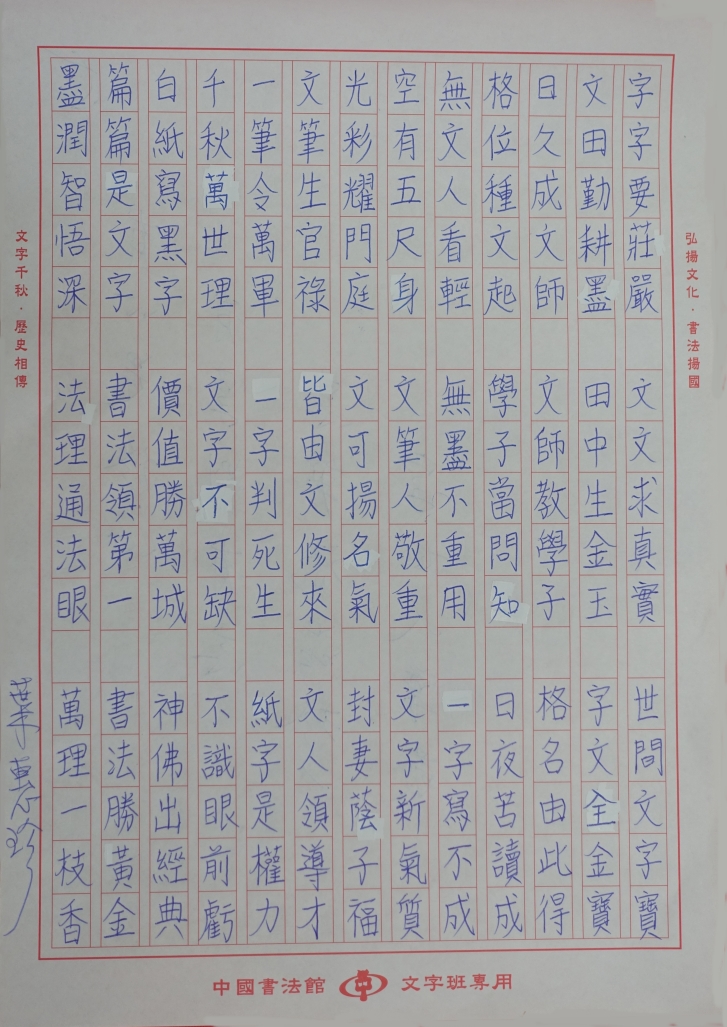 弘揚文化．書法揚國
字字要莊嚴　文文求真實　世間文字寶
文田勤耕墨　田中生金玉　字文全金寶
日久成文師　文師教學子　格名由此得
格位種文起　學子當問知　日夜苦讀成
無文人看輕　無墨不重用　一字寫不成
空有五尺身　文筆人敬重　文字新氣質
光彩耀門庭　文可揚名氣　封妻蔭子福
文筆生官祿　皆由文修來　文人領導才
一筆令萬軍　一字判死生　紙字是權力
千秋萬世理　文字不可缺　不識眼前虧
白紙寫黑字　價值勝萬城　神佛出經典
篇篇是文字　書法領第一　書法勝黃金
墨潤智悟深　法理通法眼　萬理一枝香
文字千秋．歷史相傳
中國書法館　文字班專用